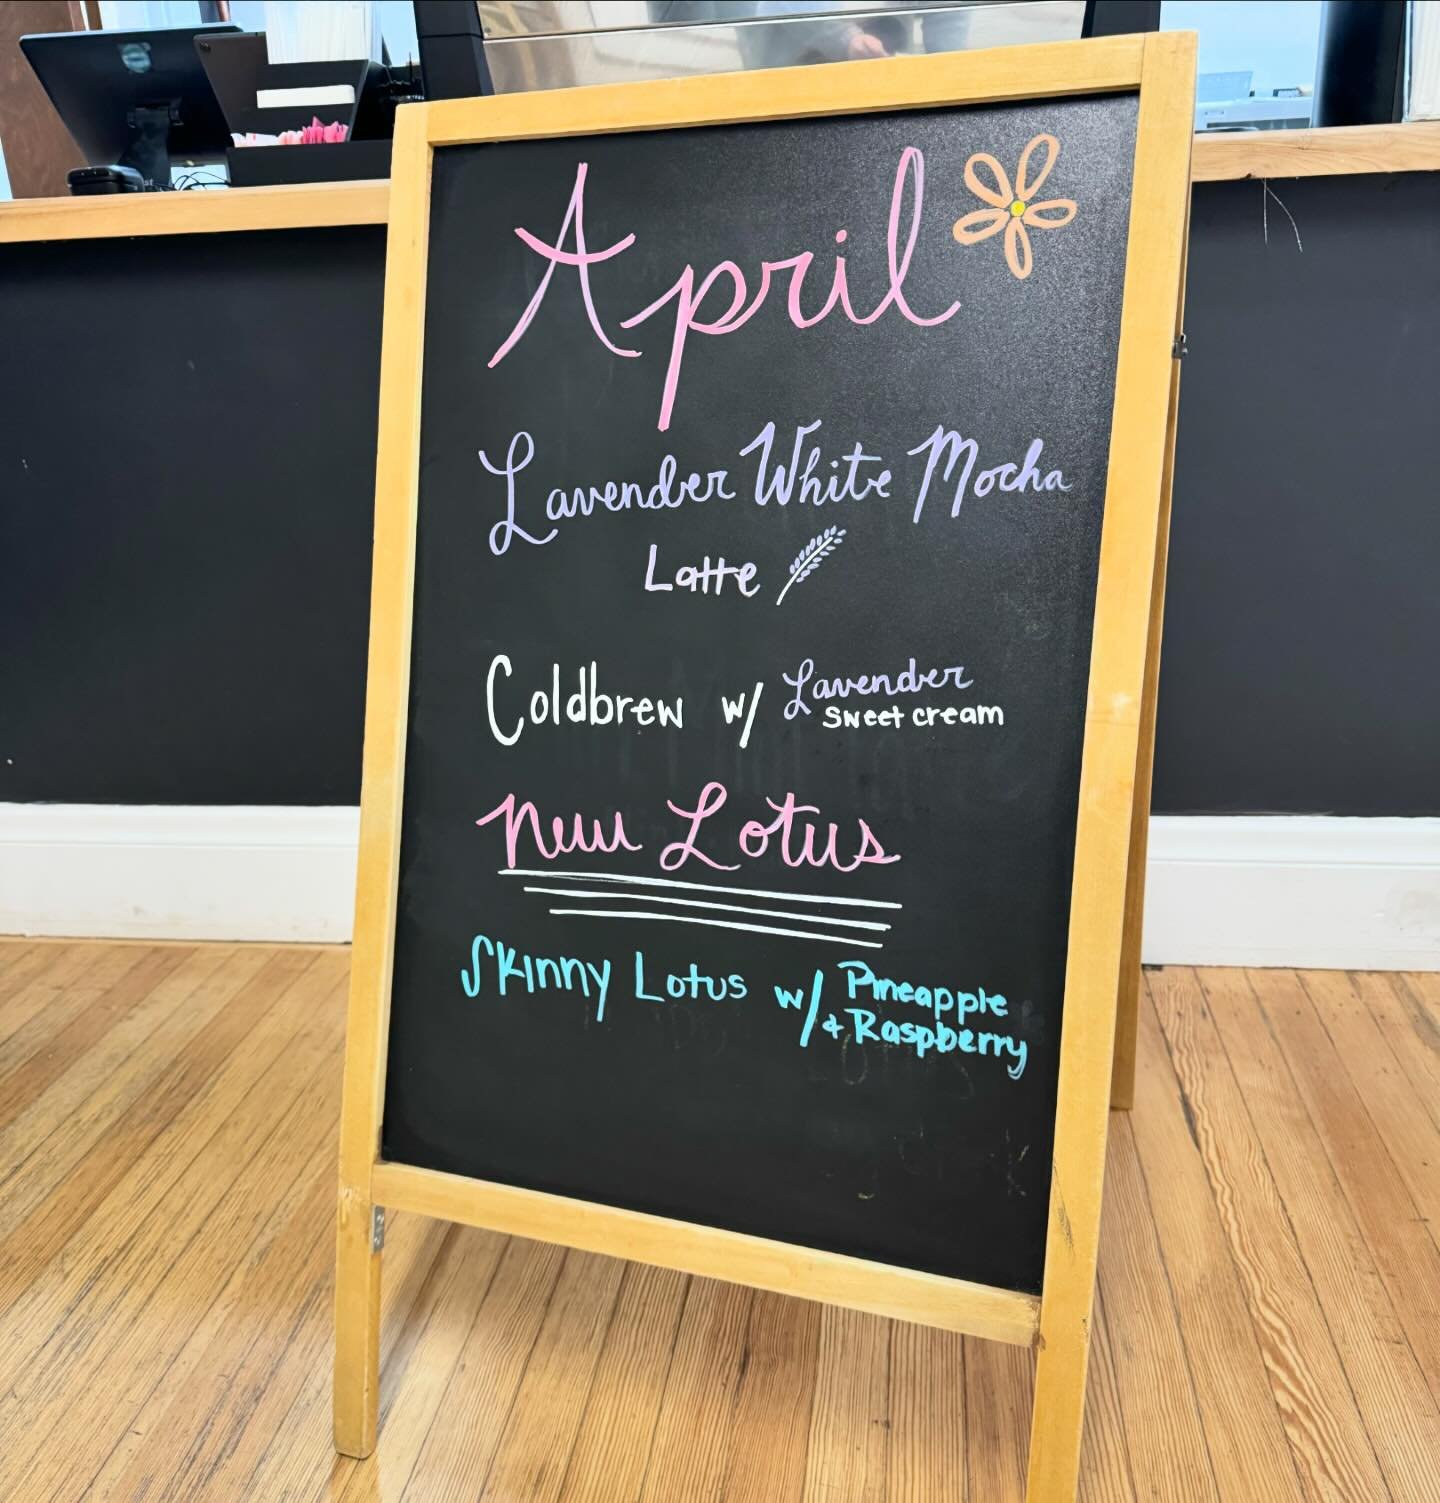 April
Lavender White Mocha
Latte
Coldbrew w/ Lavender
Sweet cream
New Lotus
Skinny Lotus w/ Pineapple
+ Raspberry